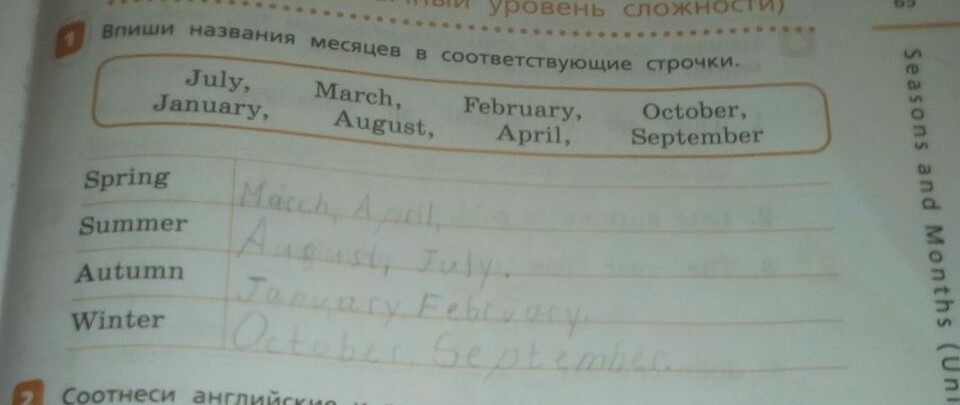 уровень сложности)
1 Впиши названия месяцев в соответствующие строчки.
July, March, February, October,
January, August, April, September
Spring March, April,
Summer August, July.
Autumn January February.
Winter October, September.
2 Соотнеси английские
Seasons and Months (Uni